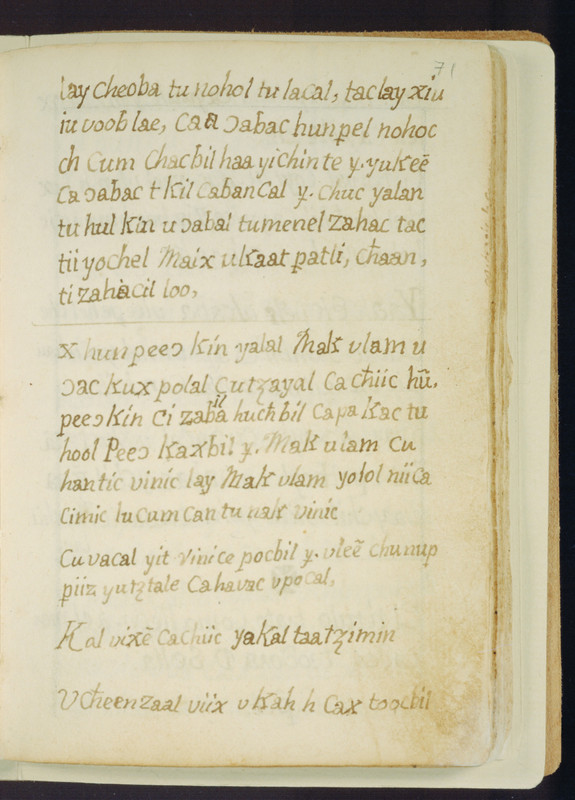 71
lay cheoba tu nohol tu lacal, tac lay xiu
iu voob lae, Ca a ɔabac hunp̱el nohoc
ch Cum Chacbil haa yichinte y. yukeẽ
Ca ɔabac t kil cabancal y. chuc yalan
tu hul kin u ɔabal tumenel zahac tac
tii yochel Maix u kaat p̱atli, cħaan,
ti zahacil loo,
x hun peeɔ kin yalal Mak vlam u
ɔac kux polal Cutʒayal Ca cħiic hũ.
peeɔ kin Ci zabail hucħbil Capa kac tu
hool Peeɔ kaxbil y. Mak ulam Cu
hantic vinic lay Mak vlam yolol niica
Cimic lucum can tu nak vinic
Cu vacal yit vinice pocbil y. vleẽ chunup
p̱iiz yutʒtale Cahavac vpocal,
Kal vixẽ Cachiic yakal taatʒimin
V Cħeen zaal viix v kah h Cax toocbil